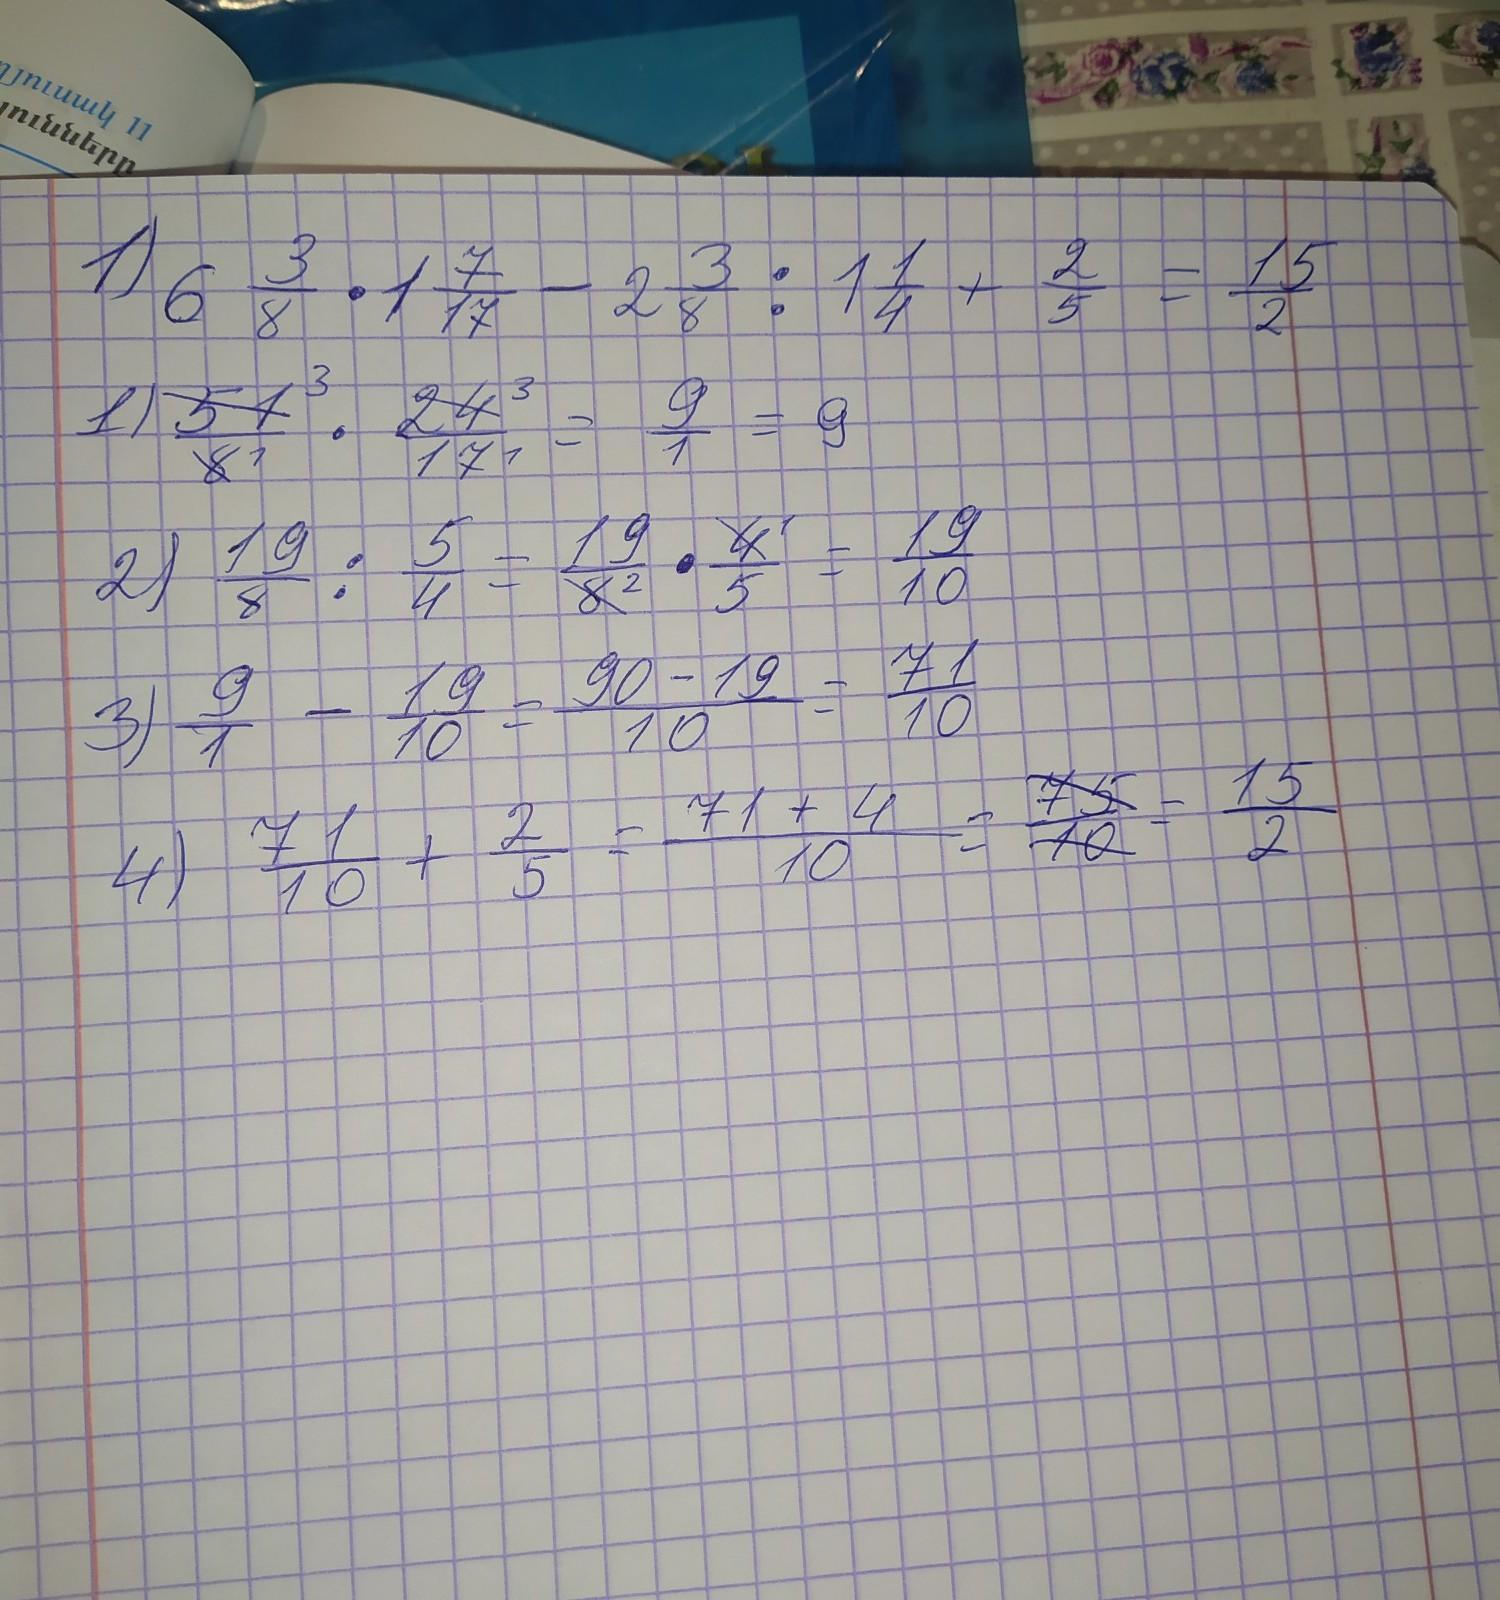 ղյուսակ 11
յունները
1) 6 3/8 · 1 7/17 - 2 3/8 : 1 1/4 + 2/5 = 15/2
1) 51³/8¹ · 24³/17¹ = 9/1 = 9
2) 19/8 : 5/4 = 19/8² · 4¹/5 = 19/10
3) 9/1 - 19/10 = 90-19/10 = 71/10
4) 71/10 + 2/5 = 71+4/10 = 75/10 = 15/2